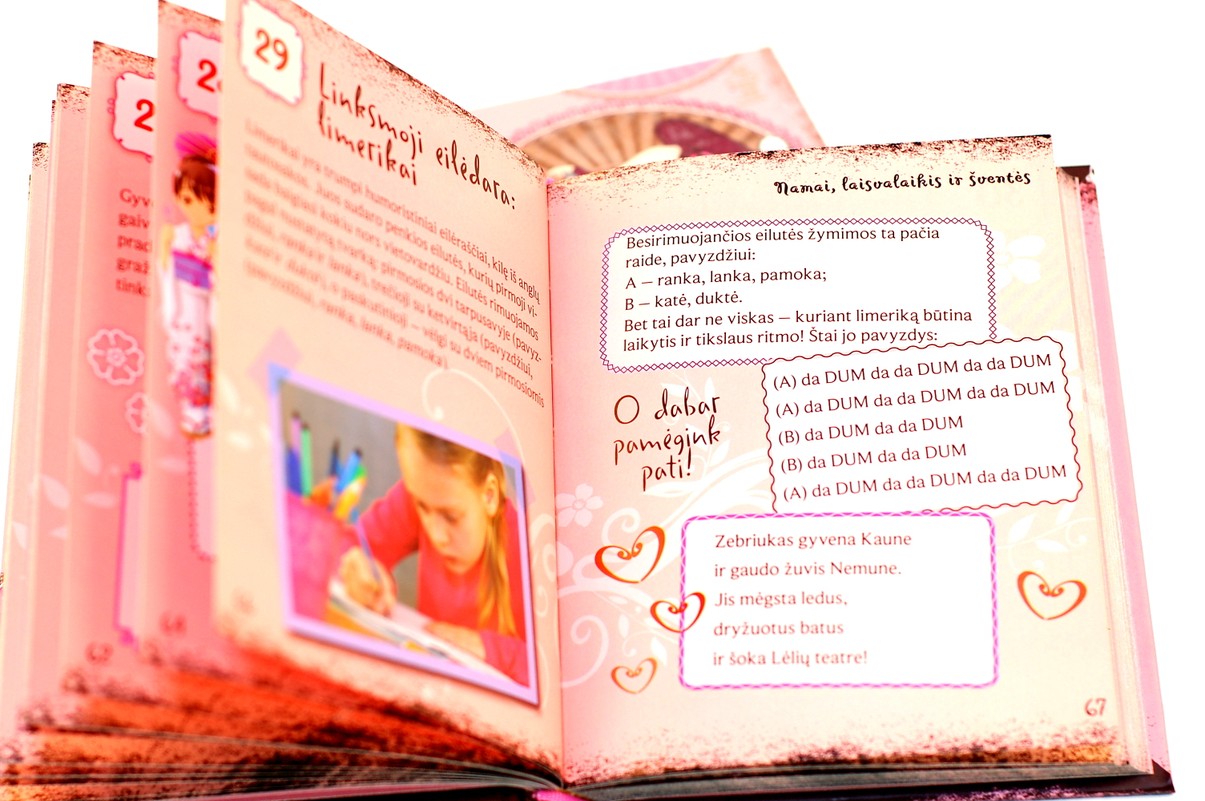 29
Linksmoji eilėdara:
limerikai
Limerikai yra trumpi humoristiniai eilėraščiai, kilę iš anglų
tautosakos. Juos sudaro penkios eilutės, kurių pirmoji vi-
sada baigiasi kokiu nors vietovardžiu. Eilutės rimuojamos
pagal nustatytą tvarką: pirmosios dvi tarpusavyje (pavyz-
džiui, ranka ir lanka), trečioji su ketvirtąja (pavyzdžiui,
katė ir duktė), o paskutinioji – vėlgi su dviem pirmosiomis
(pavyzdžiui, ranka, lanka, pamoka).
2
2
Gyv
gaiv
prac
graž
tink
Namai, laisvalaikis ir šventės
Besirimuojančios eilutės žymimos ta pačia
raide, pavyzdžiui:
A – ranka, lanka, pamoka;
B – katė, duktė.
Bet tai dar ne viskas – kuriant limeriką būtina
laikytis ir tikslaus ritmo! Štai jo pavyzdys:
(A) da DUM da da DUM da da DUM
(A) da DUM da da DUM da da DUM
(B) da DUM da da DUM
(B) da DUM da da DUM
(A) da DUM da da DUM da da DUM
O dabar
pamėgink
pati!
Zebriukas gyvena Kaune
ir gaudo žuvis Nemune.
Jis mėgsta ledus,
dryžuotus batus
ir šoka Lėlių teatre!
67